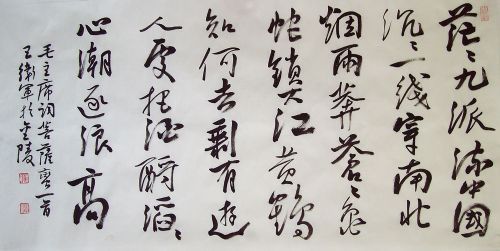 茫々九派流中國
沉々一线穿南北
烟雨莽苍々龟
蛇锁大江黄鶴
知何去剩有遊
人處把酒酹滔々
心潮逐浪高
毛主席词菩薩蛮一首
王緯軍於金陵